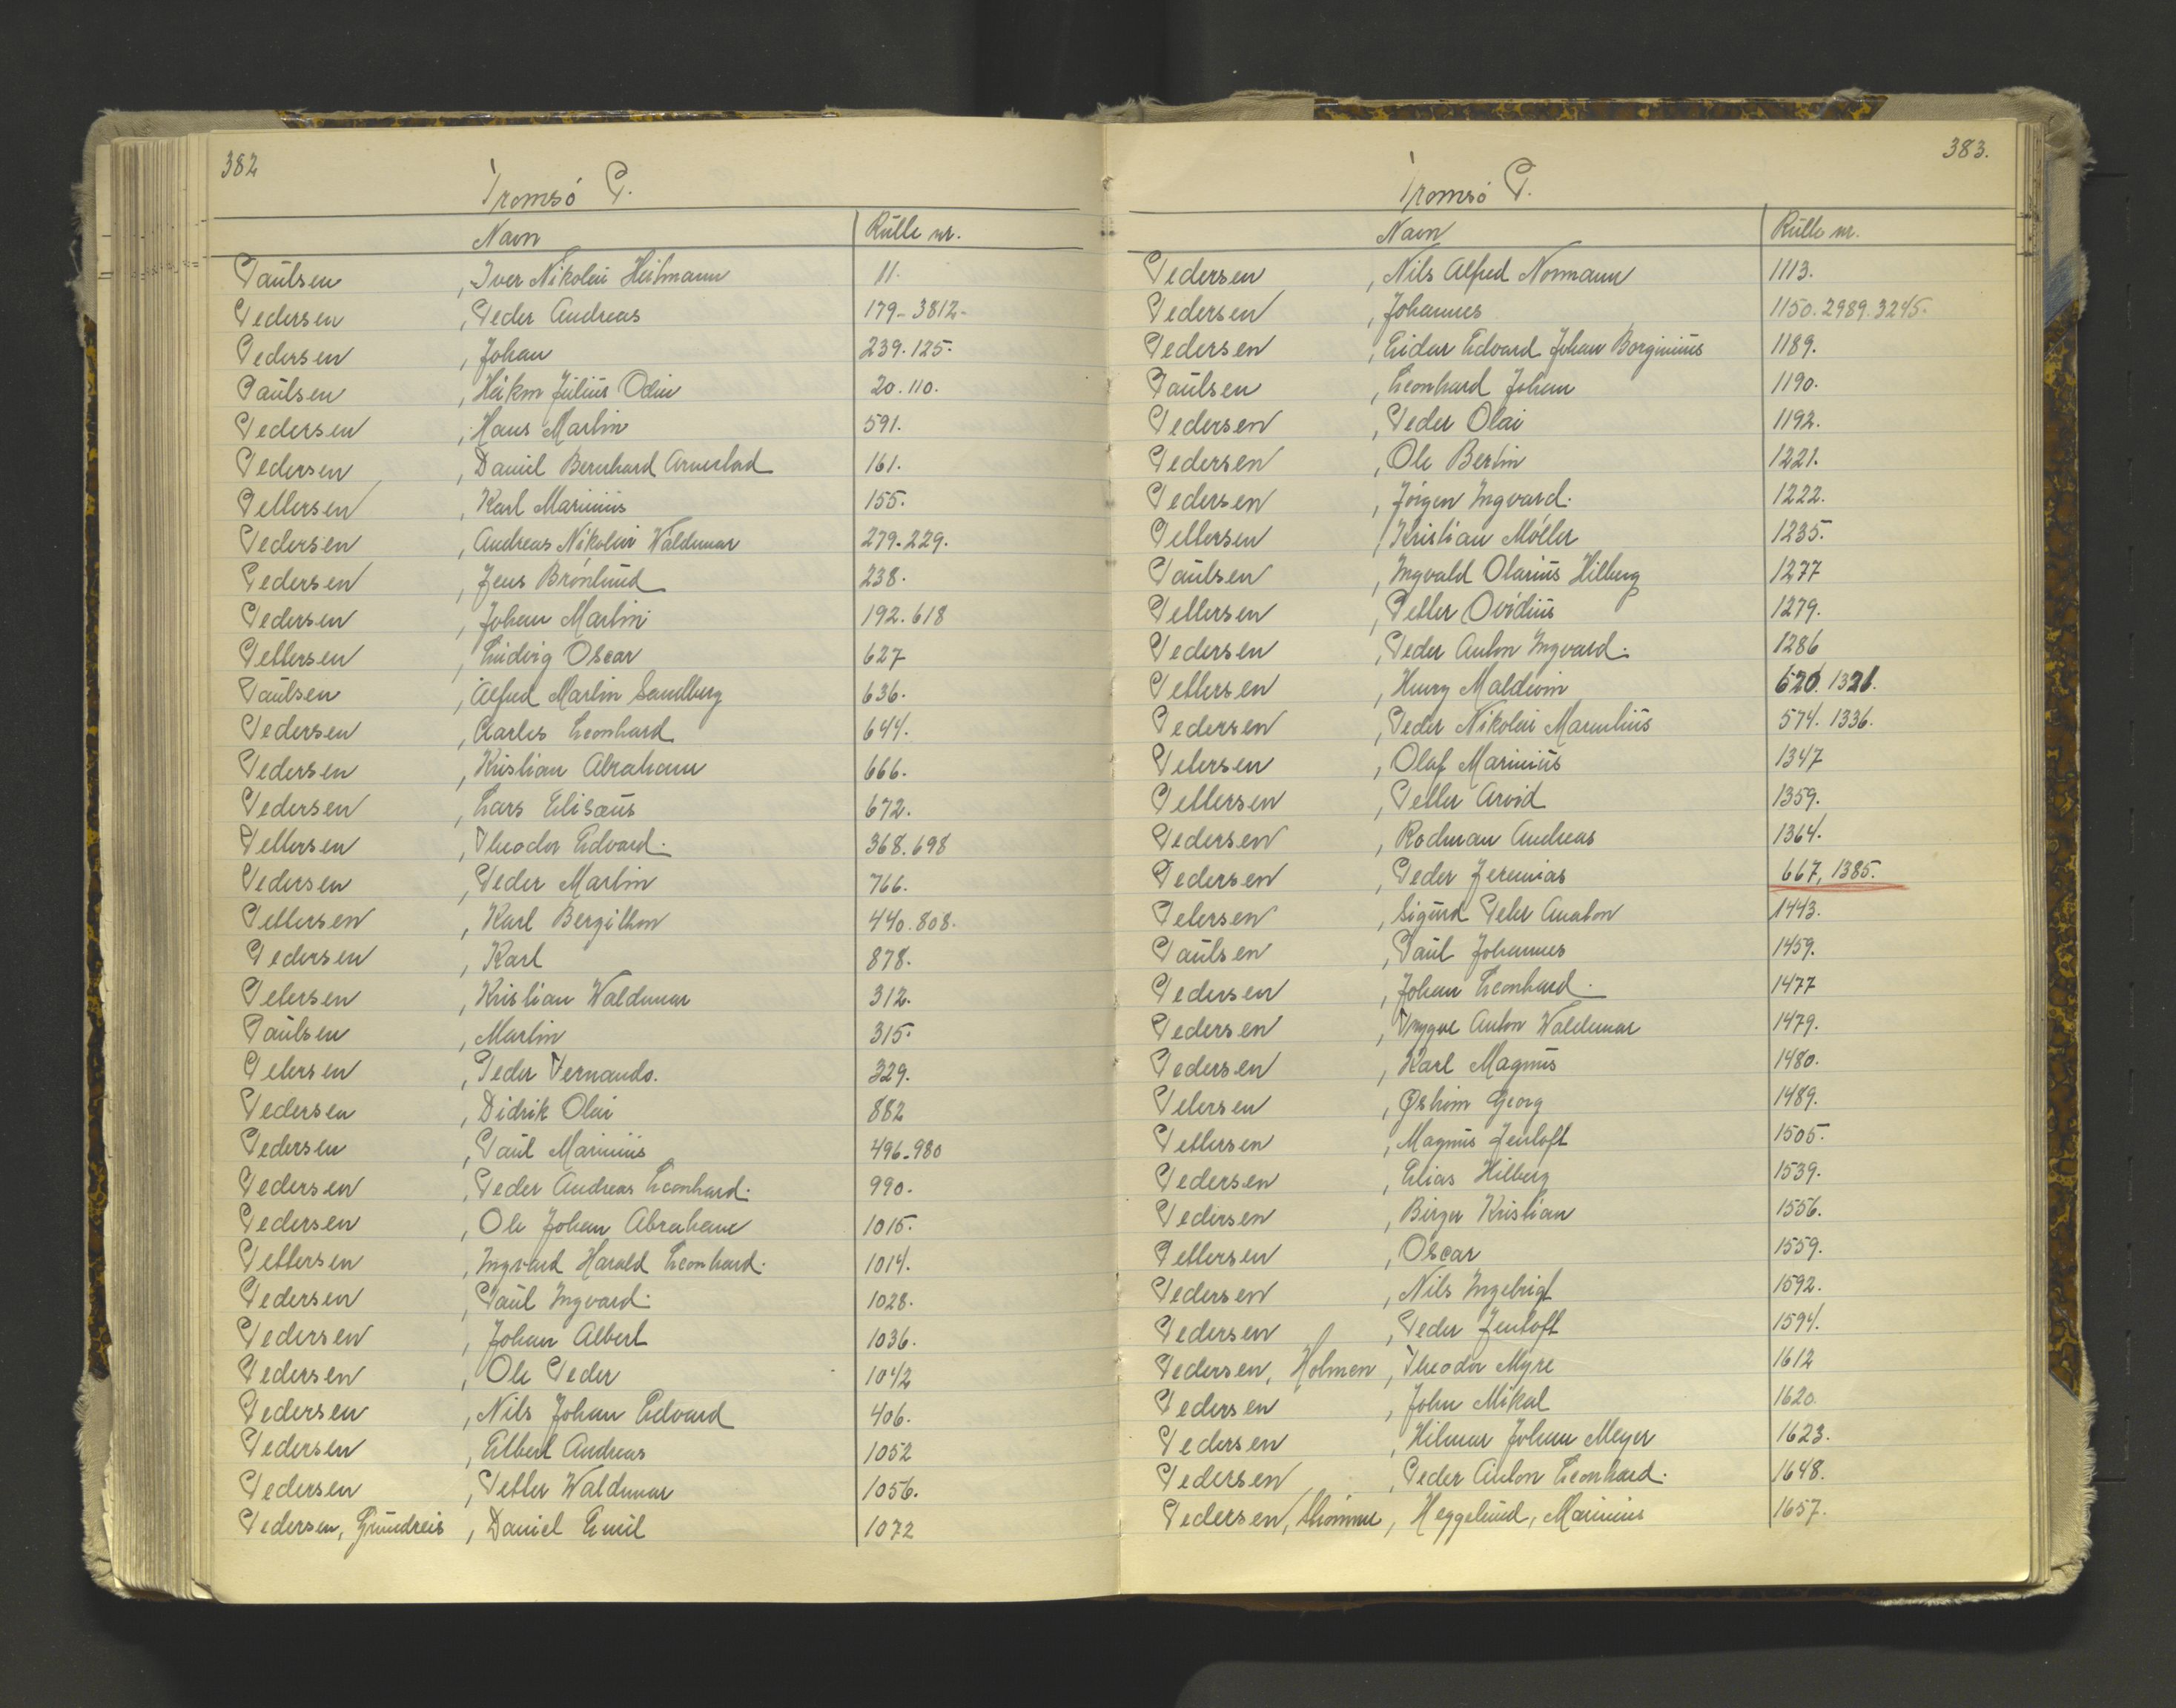 382
Tromsø P.
Navn Rulle nr.
Paulsen, Iver Nikolai Heitmann 11.
Pedersen, Peder Andreas 179-3812-
Pedersen, Johan 239.125.
Paulsen, Håkon Julius Odin 20.110.
Pedersen, Hans Martin 591.
Pedersen, Daniel Bernhard 161.
Pettersen, Karl Marinius 155.
Pedersen, Andreas Nikolai Waldemar 279.229.
Pedersen, Jens Brønlund 238.
Pedersen, Johan Martin 192.618
Pettersen, Ludvig Oscar 627
Paulsen, Alfred Martin Sandberg 636.
Pedersen, Carles Leonhard 644.
Pedersen, Kristian Abraham 666.
Pedersen, Lars Elisæus 672.
Pettersen, Theodor Edvard. 368.698
Pedersen, Peder Martin 766.
Pettersen, Karl Bergithon 440.808.
Pedersen, Karl 878.
Petersen, Kristian Waldemar 312.
Paulsen, Martin 315.
Petersen, Peder Fernando. 329.
Pedersen, Didrik Olai 882
Pedersen, Paul Marinius 496.980
Pedersen, Peder Andreas Leonhard. 990.
Pedersen, Ole Johan Abraham 1015.
Pettersen, Ingvard Harald Leonhard. 1014.
Pedersen, Paul Ingvard. 1028.
Pedersen, Johan Albert 1036.
Pedersen, Ole Peder 1042
Pedersen, Nils Johan Edvard 406.
Pedersen, Elbert Andreas 1052
Pedersen, Petter Waldemar 1056.
Pedersen, Grundreis, Daniel Emil 1072
383.
Tromsø P.
Navn Rulle nr.
Pedersen, Nils Alfred Normann 1113.
Pedersen, Johannes 1150.2989.3245.
Pedersen, Eidar Edvard Johan Borginius 1189.
Paulsen, Leonhard Johan 1190.
Pedersen, Peder Olai 1192.
Pedersen, Ole Bertin 1221.
Pedersen, Jørgen Ingvard. 1222.
Pettersen, Kristian Møller 1235.
Paulsen, Ingvald Olarius Hilberg 1277
Pettersen, Petter Ovidius 1279.
Pedersen, Peder Anton Ingvard. 1286
Pettersen, Henry Maldevin 620. 1321.
Pedersen, Peder Nikolai Marselius 574. 1336.
Petersen, Olaf Marinius 1347
Pettersen, Petter Arvid 1359.
Pedersen, Rodman Andreas 1364.
Pedersen, Peder Jeremias 667, 1385.
Petersen, Sigurd Peter Anaton 1443.
Paulsen, Paul Johannes 1459.
Pedersen, Johan Leonhard. 1477
Pedersen, Trygve Anton Waldemar 1479.
Pedersen, Karl Magnus 1480.
Petersen, Georg 1489.
Pettersen, Magnus Jentoft 1505.
Pedersen, Elias Hilberg 1539.
Pedersen, Birger Kristian 1556.
Pettersen, Oscar 1559.
Pedersen, Nils Ingebrigt 1592.
Pedersen, Peder Jentoft 1594.
Pedersen, Holmen, Theodor Myre 1612
Pedersen, John Mikal 1620.
Pedersen, Hilmar Johan Meyer 1623.
Pedersen, Peder Anton Leonhard. 1648.
Pedersen, Heggelund, Marinius 1657.